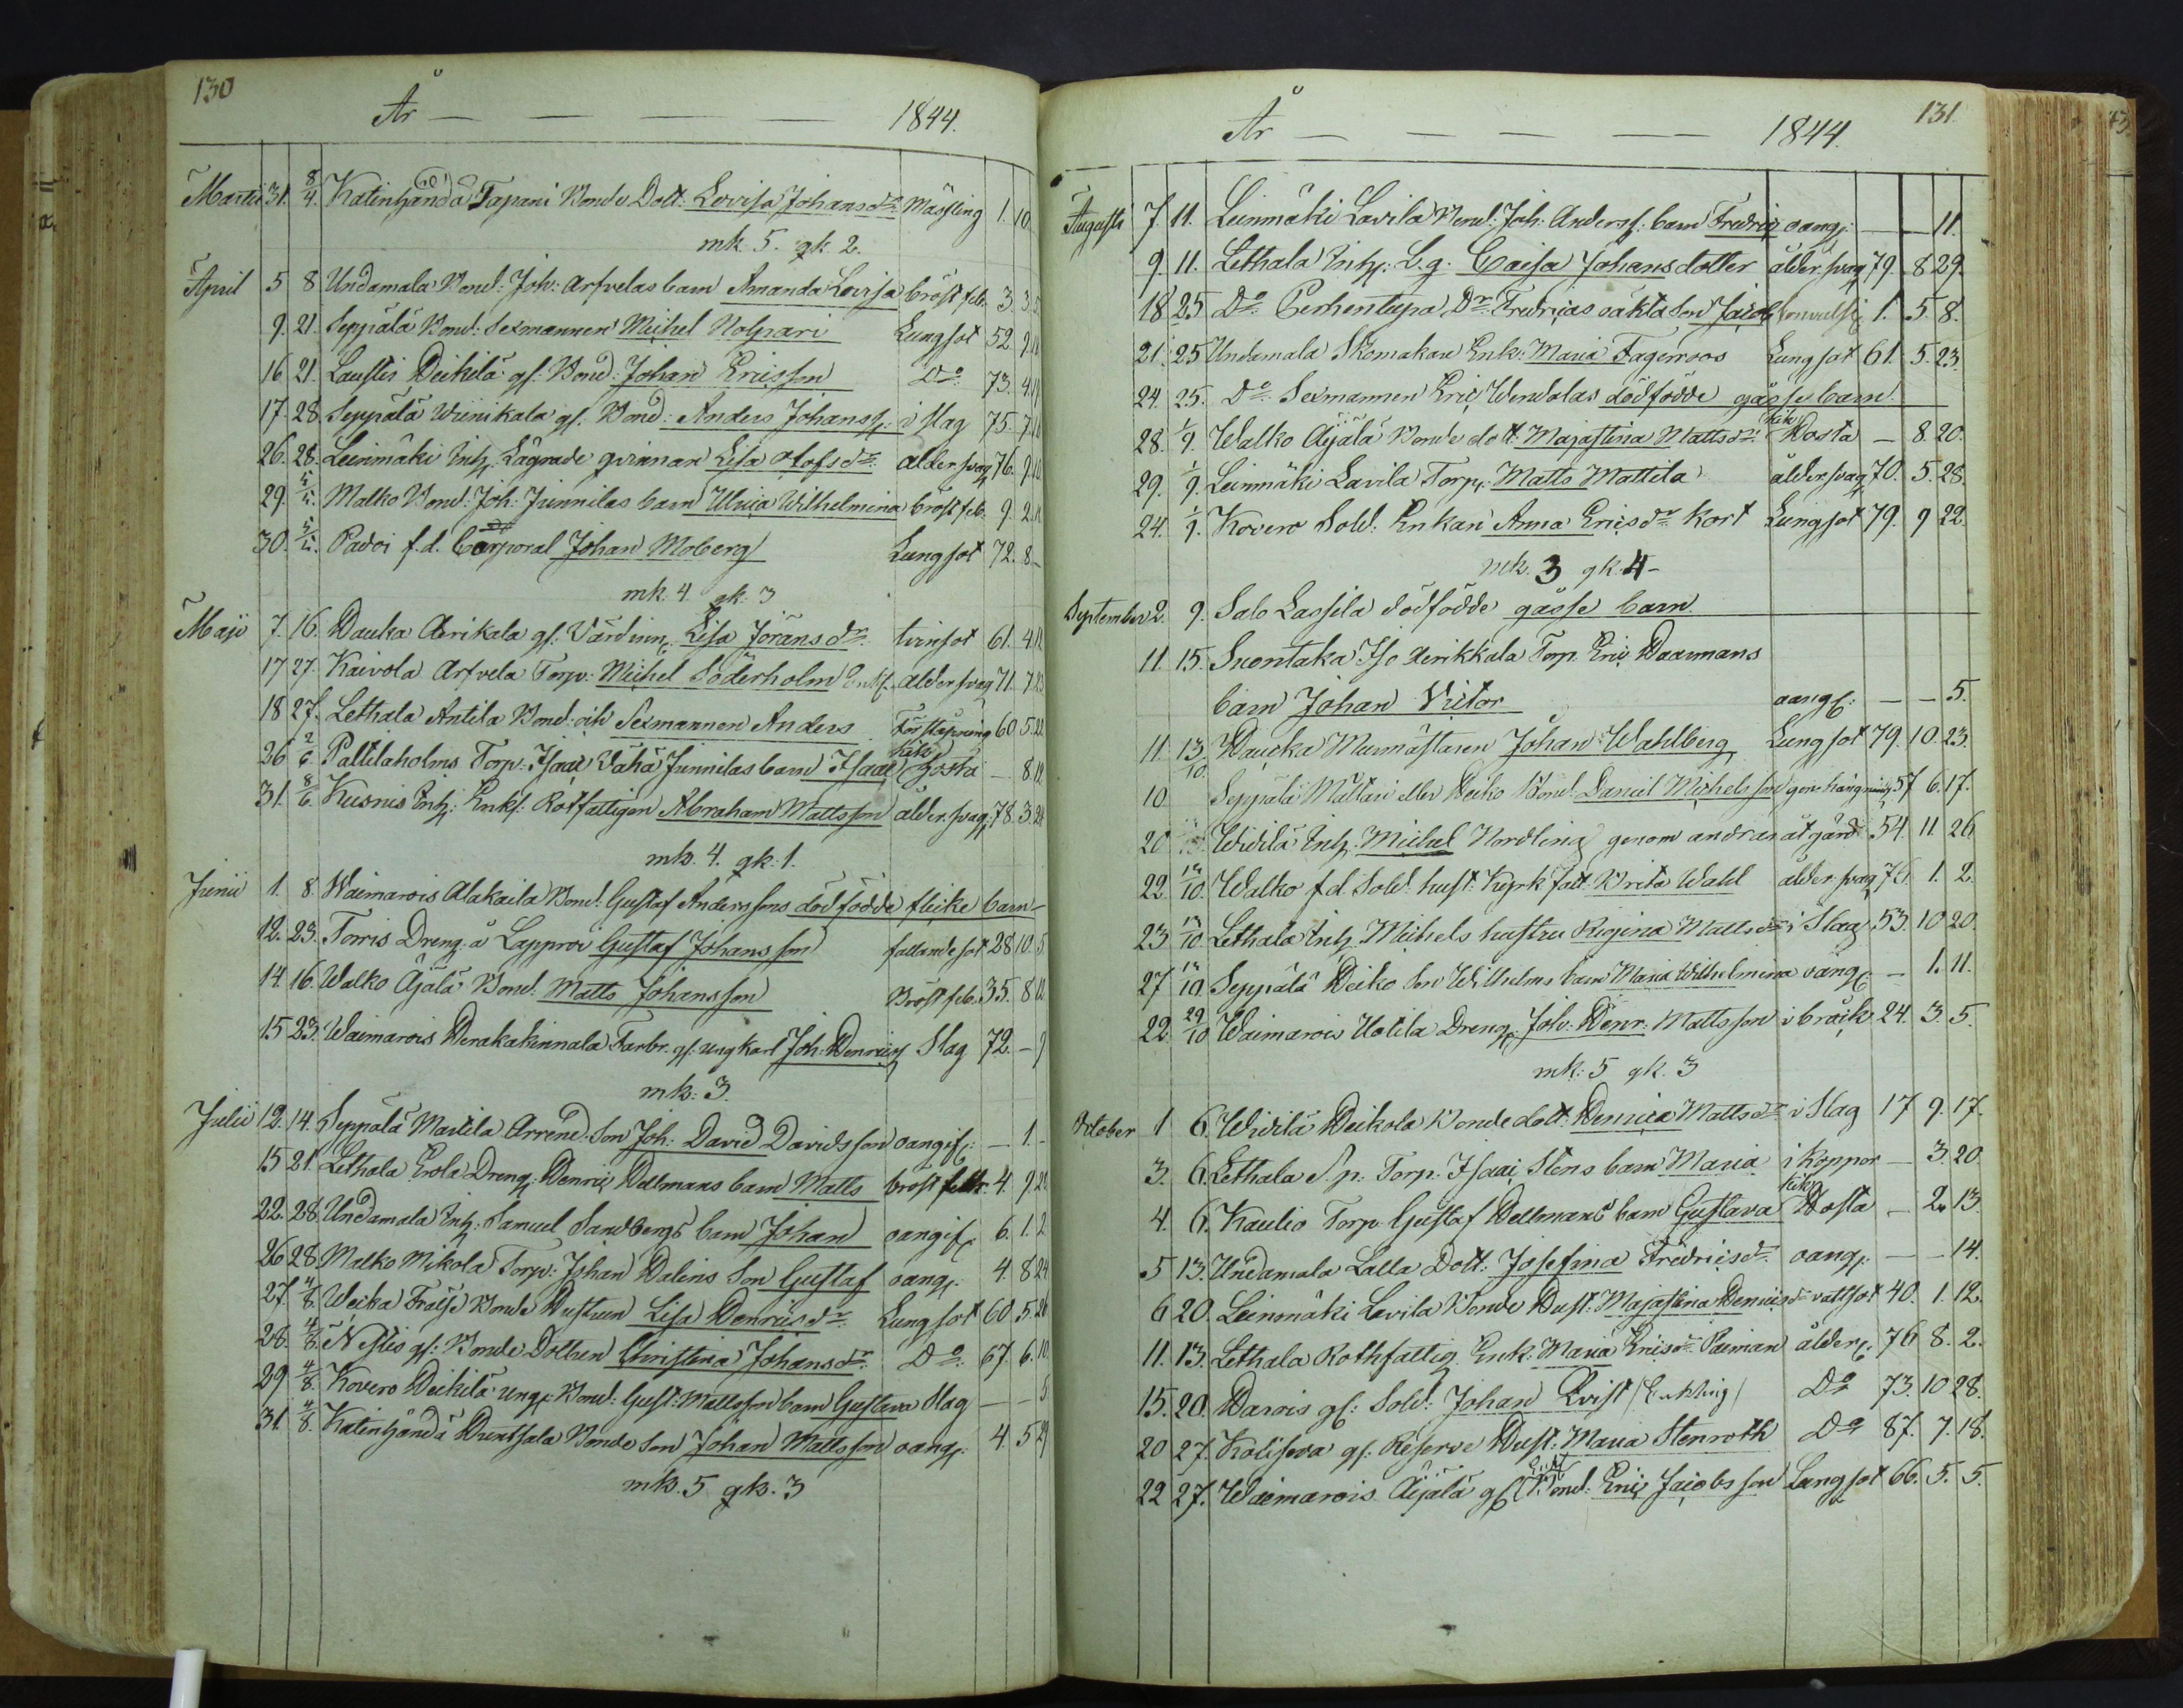 130
År — — — — 1844.
Martii 31. 8/4. Katinhändä Tapani Bonde Dott: Lovisa Johansdr. Mässling 1. 10
mk. 5. qk. 2.
April 5 8 Undamala Bond: Joh: Arfvelas barn Amanda Lovisa bröstfeb. 3. 3.
9. 21. Seppälä Bond. Sexmannen Michel Nolpari Lungsot 52. 9.
16 21. Laustis Heikilä gl. Bond: Johan Ericsson Do. 73. 4.
17. 28. Seppälä Winikala gl. Bond: Anders Johanss: i Slag 75. 7.
26. 28. Leinmäki Inh: Lägrade qvinnan Lisa Olofsdr. ålder.svag 76. 9.
29. 5/5. Malko Bond: Joh: Junnilas barn Ulrica Wilhelmina bröstfeb. 9. 2.
30. 5/5. Padoi f.d. Corporal Johan Moberg Lungsot 72. 8
mk. 4 qk. 3
Maji 7. 16. Hauka Aerikala gl. Värdinn: Lisa Jöransdr. tvinsot 61. 4.
17 27. Kaivola Arfvela Torp: Michel Söderholm Enkl. ålder.svag 71. 7
18 27. Lethala Antila Bond: och Sexmannen Anders Förstoppning 60 5.
26 2/6. Paltilaholms Torp: Isaac Vähä Junnilas barn Isaac kik hosta — 8
31. 8/6. Kusnis Inh: Enkl. Rotfattigen Abraham Mattsson ålder.svag 78. 3.
mk. 4. qk. 1.
Junii 1. 8. Waimarois Alakaila Bond. Gustaf Anderssons dödfödde flicke barn —
12. 23. Torris Dreng å Lapproi Gustaf Johansson fallandesot 28 10. 5
14. 16. Walko Äjälä Bond. Matts Johansson Bröstfeb. 35. 8
15 23. Waimarois Herakakinnala Farbr. gl. ungkarl Joh: Henrics Slag 72. —
mk: 3.
Julii 12. 14. Seppälä Martila Arrend. Son Joh: David Davidsson oangif: — 1. —
15 21. Lethala Erola Dreng: Henric Hellmans barn Matts bröstfeb. 4. 9
22. 28. Undamala Inh: Samuel Sandbergs barn Johan oangif: 6. 1. 2
26 28. Malko Mikola Torp: Johan Dalins Son Gustaf oang: 4. 8 24
27. 4/8. Weika Frais Bonde Hustrun Lisa Henricsdr. Lungsot 60. 5. 26
28. 4/8. Nestis gl: Bonde Dottren Christina Johansdr. Do. 67. 6. 10
29 4/8. Kovero Heikilä ung: Bond: Gust: Mattsson barn Gustava Slag — — 5
31. 4/8. Katinhändä Huntsala Bonde Son Johan Mattsson oang: 4. 5 29
mk. 5 qk. 3
131.
År — — — — 1844.
Augusti 7. 11. Leinmäki Lavila Bond: Joh. Anderss: barn Fredric oang: — — 11.
9. 11. Lethala Inh: L.g. Caisa Johansdotter ålder.svag 79. 8 29.
18 25 Do. Perhentupa Dr. Fredricas oäkta Son Jacob convulsi: 1. 5. 8.
21. 25 Undamala Skomakare Enk: Maria Fagerroos Lungsot 61. 5. 23.
24. 25. Do. Sexmannen Eric Wendalas dödfödde gåsse barn
28. 1/9. Walko Äijälä Bonde dott: Majastina Mattsdr. kik Hosta — 8. 20.
29. 1/9. Leinmäki Lavila Torp: Matts Mattila ålder.svag 70. 5. 28.
24. 1/9. Kovero Sold. Enkan Anna Ericsdr. Kort Lungsot 79. 9 22.
mk. 3 qk. 4 —
September 2. 9. Salo Lassila dödfödde gåsse barn
11. 15. Suontaka Iso Aerikkala Torp. Eric Haarmans
barn Johan Victor oang: — — 5.
11. 13/10. Haucka Murmästaren Johan Wahlberg Lungsot 79. 10. 23.
10 Seppälä Mattari eller Heiko Bond. Daniel Michelsson gen. hängning 57 6. 17.
20 Widilä Inh: Michel Nordling genom andras åtgärd 54 11 26
22. 13/10. Walko f.d. Sold. hust: Kyrk fatt. Brita Wahl ålder.svag 76. 1. 2.
23 13/10 Lethala Inh: Michels hustru Regina Mattsdr. i Slag 53. 10 20.
27 13/10 Seppälä Heiko Son Wilhelms barn Maria Wilhelmina oang: — 1. 11.
22. 29/10 Waimarois Uotila Dreng: Joh: Henr: Mattsson i bråck 24. 3. 5.
mk: 5 qk. 3
October 1 6. Widilä Heikola Bonde dott: Henrica Mattsdr. i Slag 17 9. 17.
3. 6. Lethala S.p: Torp: Isaac Stens barn Maria i Koppor — 3. 20
4. 6. Kaulio Torp. Gustaf Hellmans barn Gustava kik Hosta — 2. 13.
5 13. Undamala Lalla Dott: Josefina Fredricsdr. oang: — — 14.
6 20. Leinmäki Levila Bonde Hust: Majastina Henricsdr. vattsot 40. 1. 12.
11. 13. Lethala Rothfattig Enk. Maria Ericsdr. Paiman ålder: 76 8. 2.
15. 20. Darois gl: Sold: Johan Qvist (Enkling) Do 73. 10 28.
20 27. Koliseva gl. Reserve Hust: Maria Stenroth Do 87. 7. 18.
22 27. Waimarois Äijälä gl. Bond: Eric Jacobsson Lungsot 66. 5. 5.